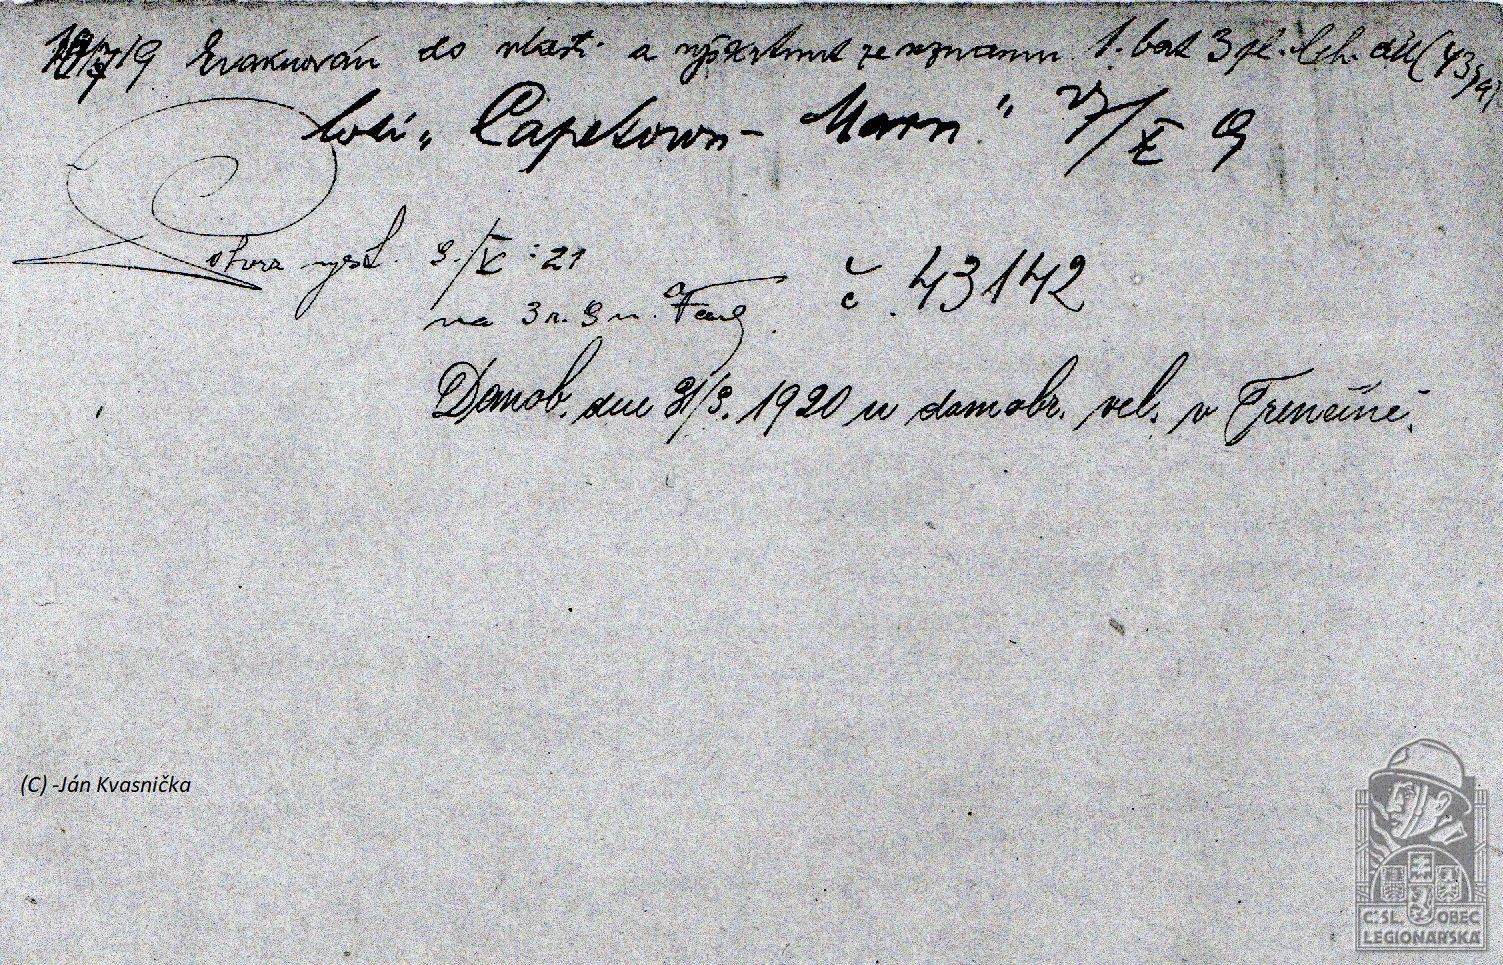 18/7 19 Evakuován do vlasti a vyškrtnut ze seznamu 1. bat 3 pl.
lodí „Capetown - Maru" X 19
Potvrz vyst. 9./X : 21 č. 43142
na 3 r. 9 m.
Demob. dne 31/8. 1920 u domobr. vel. v Trenčíně.
(C) -Ján Kvasnička
Č.SL. OBEC
LEGIONÁŘSKÁ